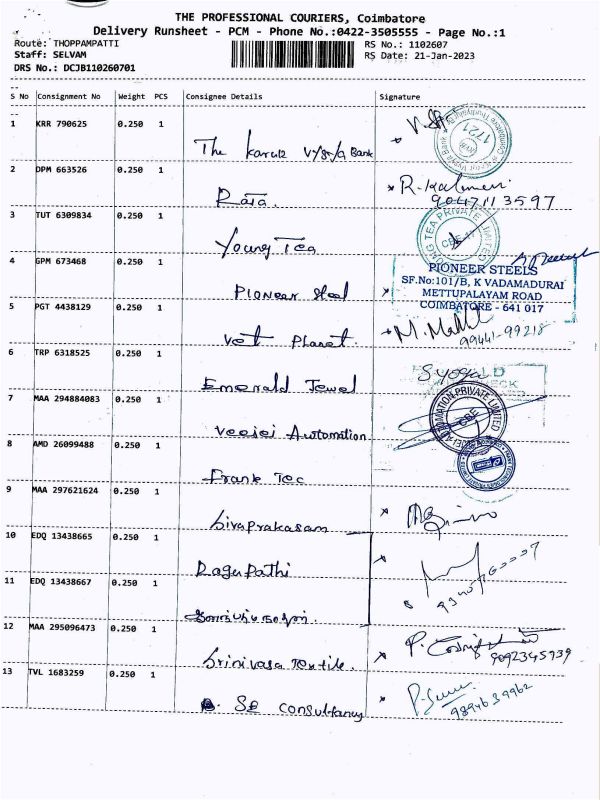 THE PROFESSIONAL COURIERS, Coimbatore
Delivery Runsheet - PCM - Phone No.:0422-3505555 - Page No.:1
Route: THOPPAMPATTI
RS No.: 1102607
Staff: SELVAM
RS Date: 21-Jan-2023
DRS No.: DCJB110260701
S No Consignment No Weight PCS Consignee Details Signature
1 KRR 790625 0.250 1 The Karur Vysya Bank
1721
2 DPM 663526 0.250 1 Raja. R.
9047113597
3 TUT 6309834 0.250 1 Young Tea
YOUNG TEA PRIVATE LIMITED
CBE-47
4 GPM 673468 0.250 1 Pioneer Steel
PIONEER STEELS
SF.No:101/B, K VADAMADURAI
METTUPALAYAM ROAD
COIMBATORE - 641 017
5 PGT 4438129 0.250 1 Vet Planet. M.
99441-99218
6 TRP 6318525 0.250 1 Emerald Jewel
7 MAA 294884083 0.250 1 Veejei Automation
AUTOMATION PRIVATE LIMITED
CBE
8 AMD 26099488 0.250 1 Frank Tec
9 MAA 297621624 0.250 1 Sivaprakasam
10 EDQ 13438665 0.250 1 Ragupathi
11 EDQ 13438667 0.250 1
12 MAA 295096473 0.250 1 Srinivasa Textile. P.
9092345939
13 TVL 1683259 0.250 1 SE Consultancy
9894639962